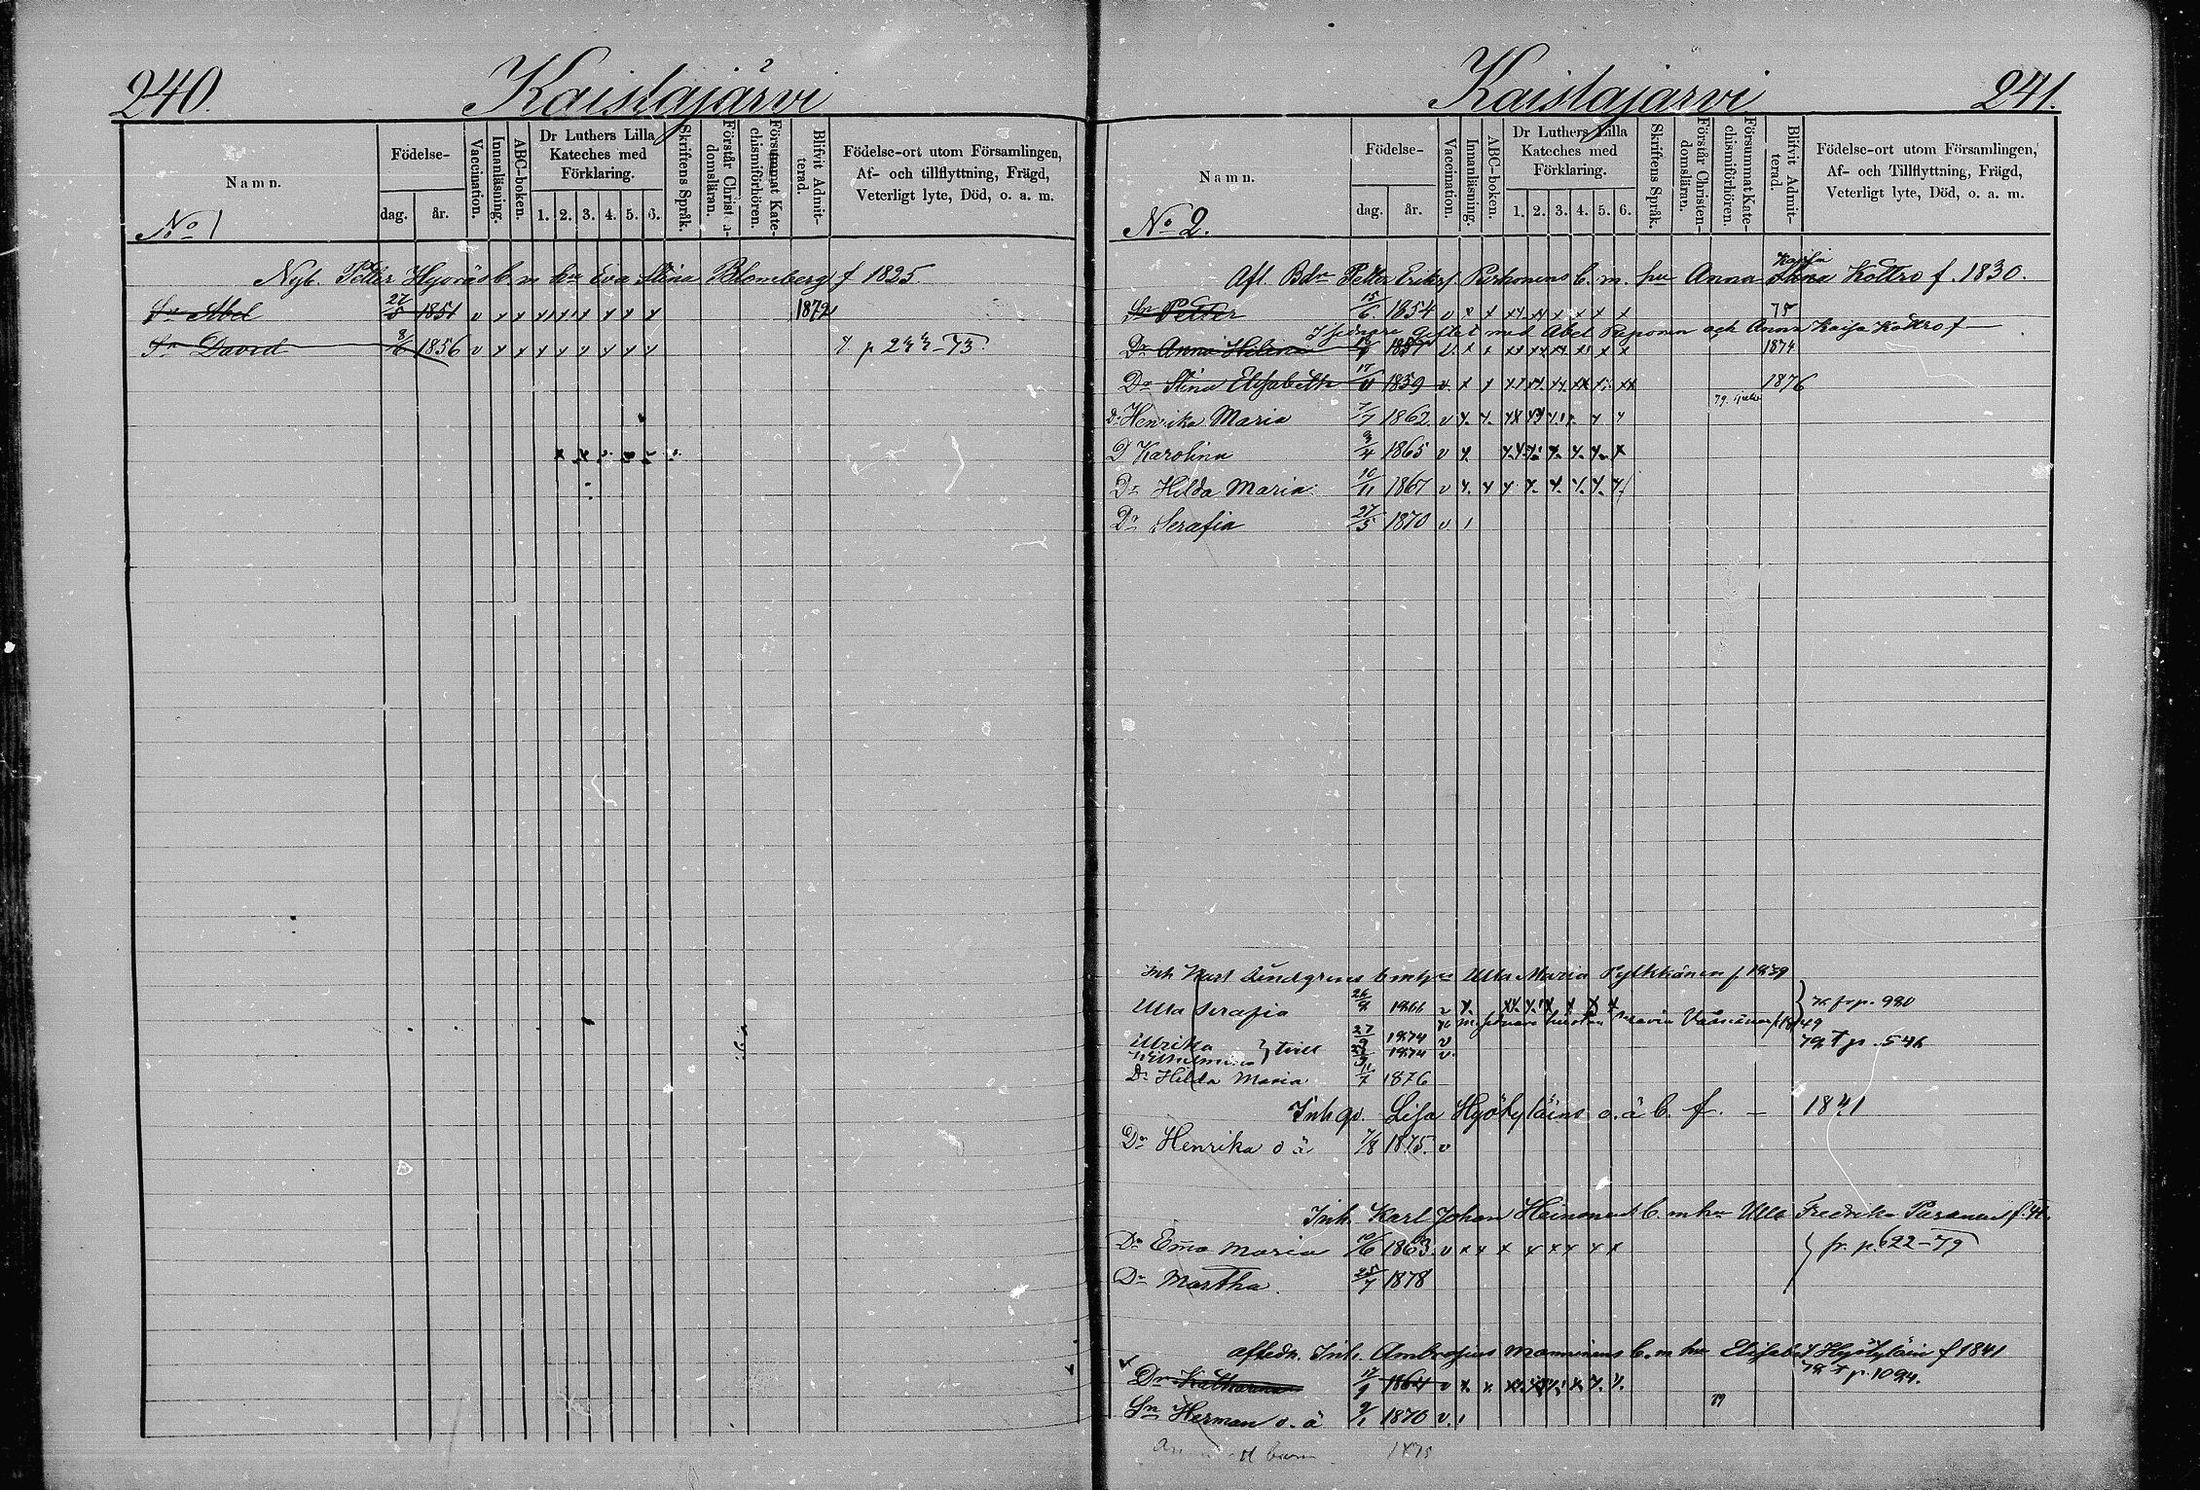 240. Kaistajärvi
Namn. Födelse- dag. år. Vaccination. Innanläsning. ABC-boken. Dr Luthers Lilla Kateches med Förklaring. 1. 2. 3. 4. 5. 6. Skriftens Språk. Förstår Christendomsläran. Försummat Katechismiförhören. Blifvit Admitterad. Födelse-ort utom Församlingen, Af- och tillflyttning, Frägd, Veterligt lyte, Död, o. a. m.
No 1
Nyb. Petter b. m. hu Eva Stina Blomberg f 1825.
Sn Abel 27/5 1851 v x x x x x x x x x 1872
Sn David 3/6 1856 v x x x x x x x x
Kaistajärvi 241.
Namn. Födelse- dag. år. Vaccination. Innanläsning. ABC-boken. Dr Luthers Lilla Kateches med Förklaring. 1. 2. 3. 4. 5. 6. Skriftens Språk. Förstår Christendomsläran. Försummat Katechismiförhören. Blifvit Admitterad. Födelse-ort utom Församlingen, Af- och Tillflyttning, Frägd, Veterligt lyte, Död, o. a. m.
No 2.
Afl. Bdn Petter Eriksf. Pirhonens b. m. hu Anna Stina Kaisa Kottro f. 1830.
Sn Petter 15/6 1854 v x x x x x x x x 75
giftet med Abel och Anna Kaisa Kottro f
Dr Anna Helena 1857 v x x x x x x x x 1874
Dr Stina Elisabeth 17/11 1859 v x x x x x x x x 1876
Dr Henrika Maria 7/7 1862 v x x x x x x x x 79
D Karolina 3/4 1865 v x x x x x x x
Dr Hilda Maria 10/11 1867 v x x x x x x x x
Dr Serafia 27/5 1870 v 1
Inh Lindgrens b m hu Ulla Maria Pylkkänen f 1839
Ulla Serafia 26/9 1866 v x x x x x x x fr p. 980
Maria Väisänen f 1849
Ulrika } tvill 27/9 1874 v 79 t p. 546
Wilhelmina 27/9 1874 v
Dr Hilda Maria 1876
Inh qv. Lisa Hyötyläins o. ä b. f. — 1841
Dr Henrika o ä 7/8 1875. v
Inh. Karl Johan Heinonens b. m hu Ulla Fredrika f. 41.
Dr Emma Maria 1863 v x x x x x x x x } fr. p. 622-79
Dr Martha. 25/7 1878
Afskedr. Inh. Ambrosius Manninens b. m hu Elisabet Hyötyläin f 1841
Dr Katharina 1864 v x x x x x x x x 79 t p. 1094.
Sn Herman o. ä 9/1 1870 v. 1 79
barn 1875